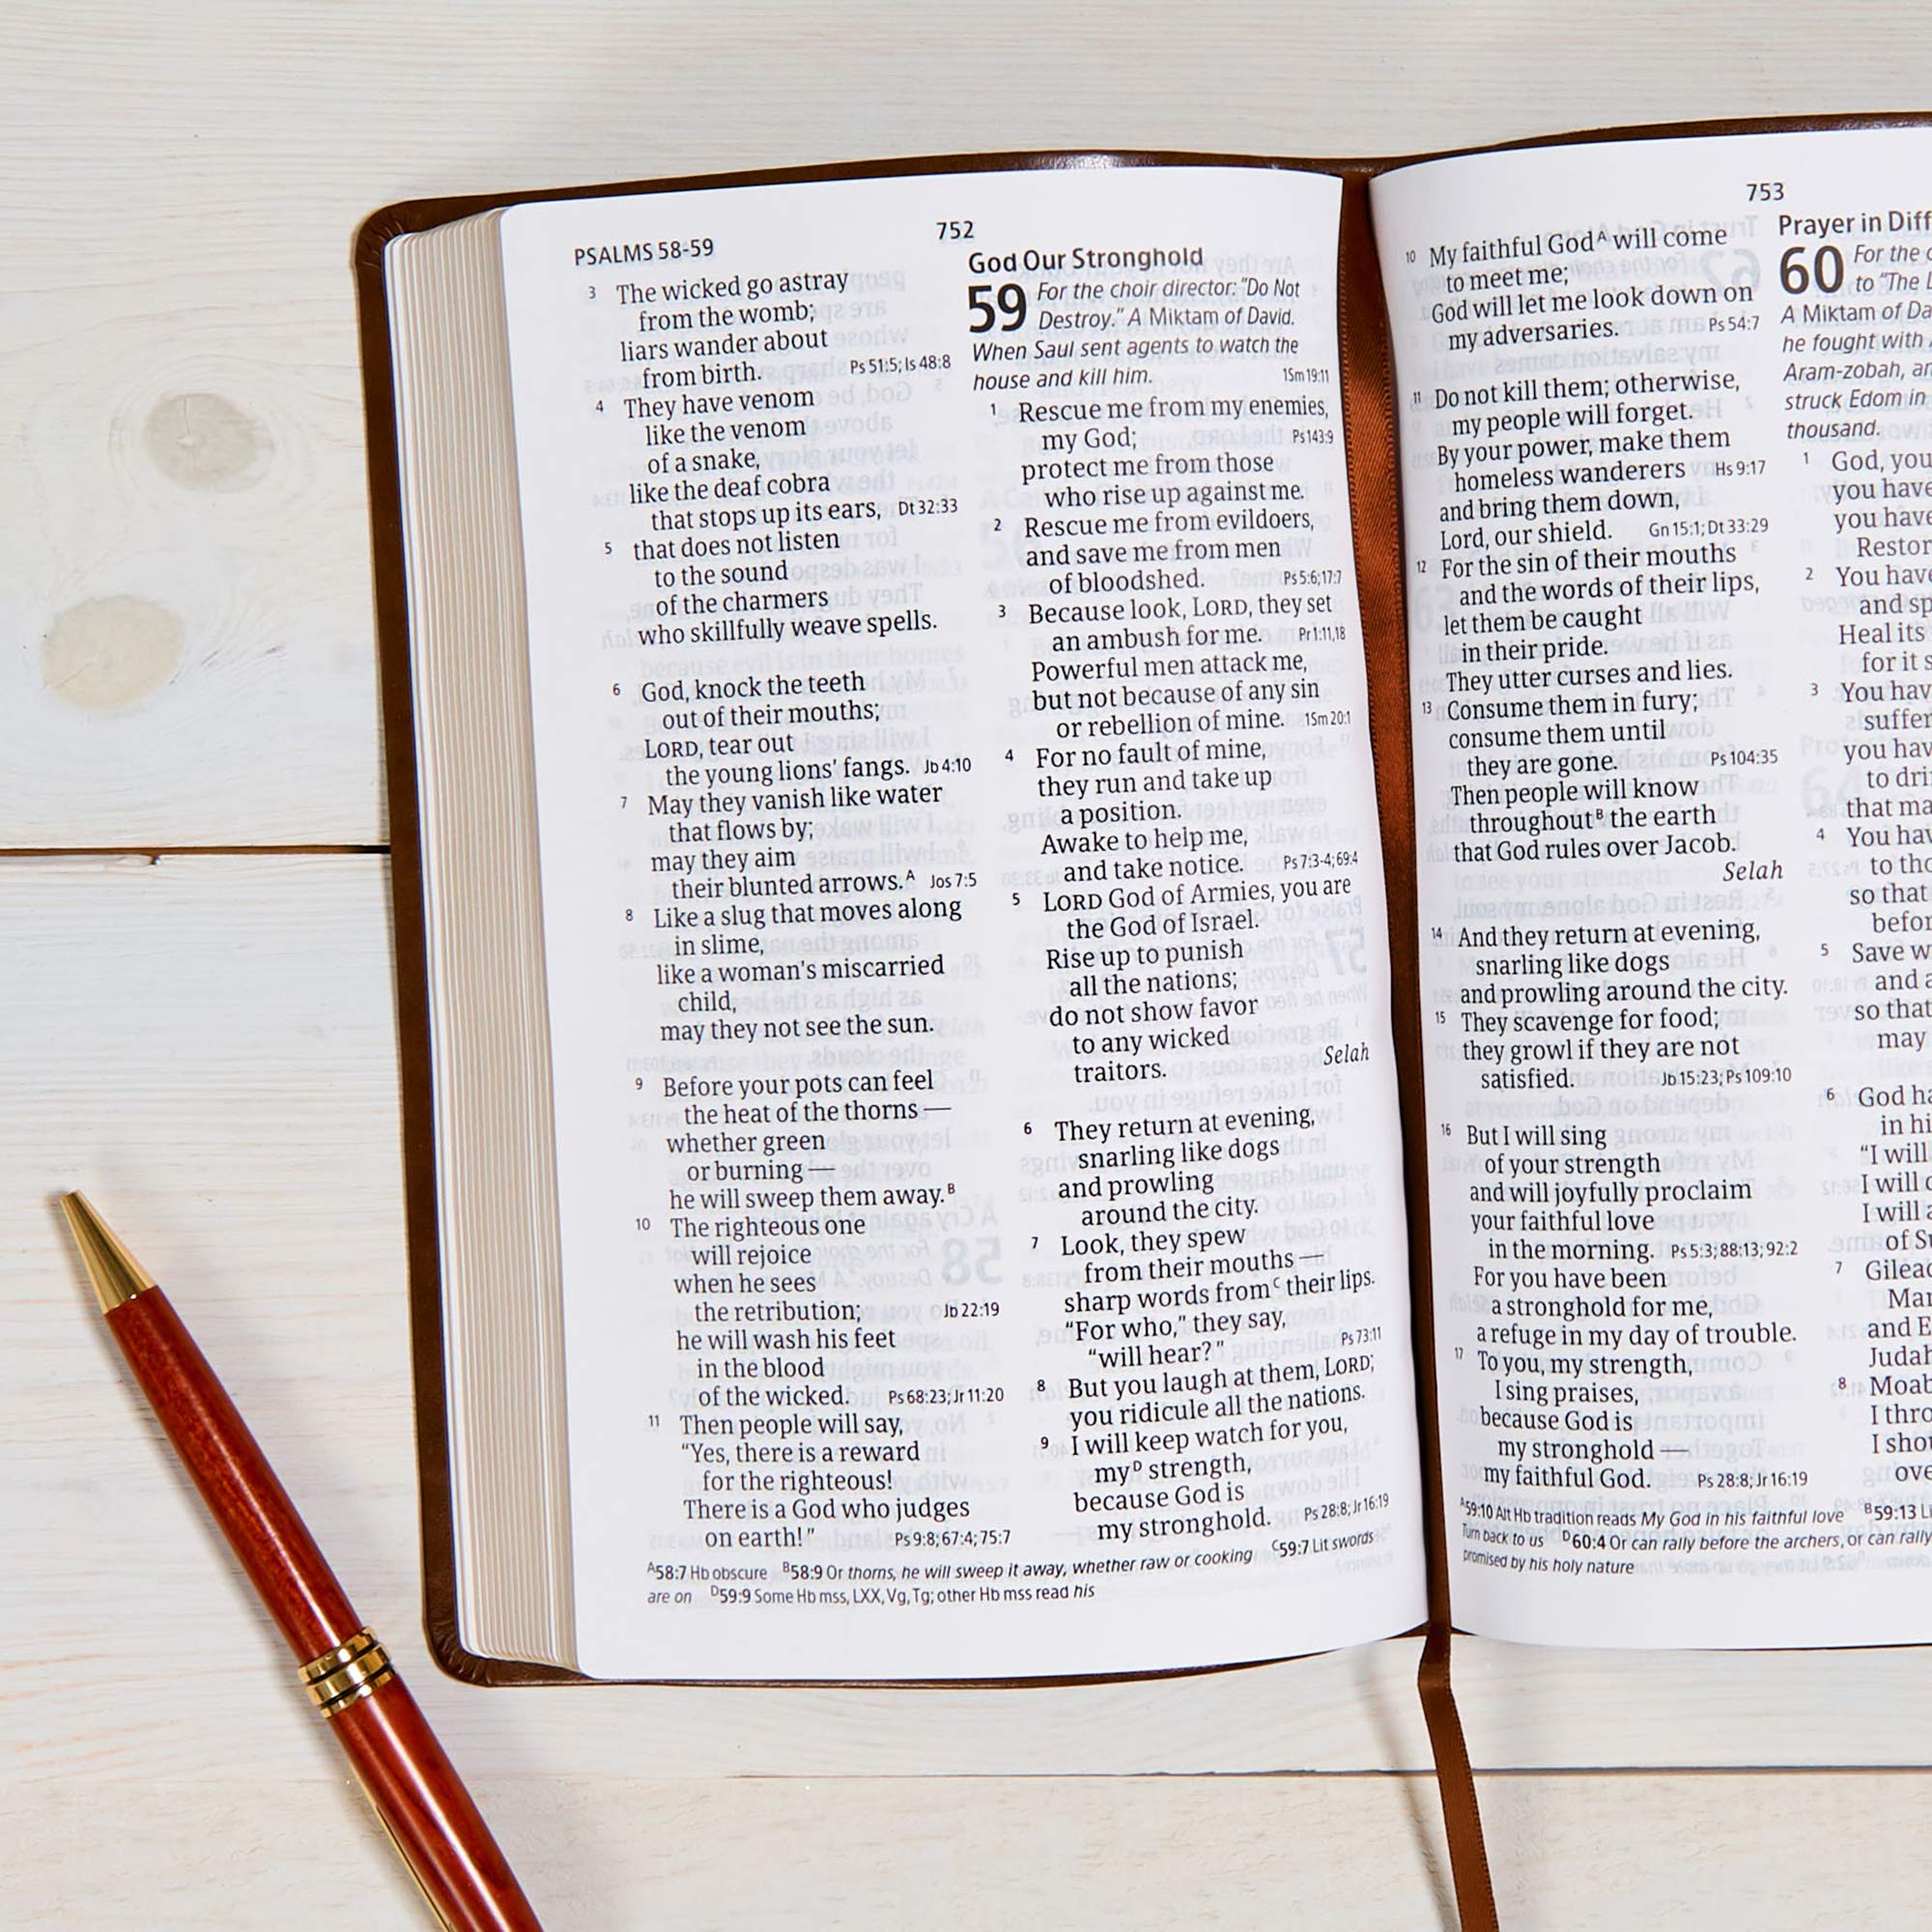 PSALMS 58-59
752
3 The wicked go astray
from the womb;
liars wander about
from birth. Ps 51:5; Is 48:8
4 They have venom
like the venom
of a snake,
like the deaf cobra
that stops up its ears, Dt 32:33
5 that does not listen
to the sound
of the charmers
who skillfully weave spells.
6 God, knock the teeth
out of their mouths;
LORD, tear out
the young lions' fangs. Jb 4:10
7 May they vanish like water
that flows by;
may they aim
their blunted arrows.A Jos 7:5
8 Like a slug that moves along
in slime,
like a woman's miscarried
child,
may they not see the sun.
9 Before your pots can feel
the heat of the thorns —
whether green
or burning —
he will sweep them away.B
10 The righteous one
will rejoice
when he sees
the retribution; Jb 22:19
he will wash his feet
in the blood
of the wicked. Ps 68:23; Jr 11:20
11 Then people will say,
"Yes, there is a reward
for the righteous!
There is a God who judges
on earth!" Ps 9:8; 67:4; 75:7
God Our Stronghold
59 For the choir director: "Do Not
Destroy." A Miktam of David.
When Saul sent agents to watch the
house and kill him. 1Sm 19:11
1 Rescue me from my enemies,
my God; Ps 143:9
protect me from those
who rise up against me.
2 Rescue me from evildoers,
and save me from men
of bloodshed. Ps 5:6; 17:7
3 Because look, LORD, they set
an ambush for me. Pr 1:11,18
Powerful men attack me,
but not because of any sin
or rebellion of mine. 1Sm 20:1
4 For no fault of mine,
they run and take up
a position.
Awake to help me,
and take notice. Ps 7:3-4; 69:4
5 LORD God of Armies, you are
the God of Israel.
Rise up to punish
all the nations;
do not show favor
to any wicked
traitors. Selah
6 They return at evening,
snarling like dogs
and prowling
around the city.
7 Look, they spew
from their mouths —
sharp words fromC their lips.
"For who," they say,
"will hear?" Ps 73:11
8 But you laugh at them, LORD;
you ridicule all the nations.
9 I will keep watch for you,
myD strength,
because God is
my stronghold. Ps 28:8; Jr 16:19
A58:7 Hb obscure B58:9 Or thorns, he will sweep it away, whether raw or cooking C59:7 Lit swords
are on D59:9 Some Hb mss, LXX, Vg, Tg; other Hb mss read his
753
10 My faithful GodA will come
to meet me;
God will let me look down on
my adversaries. Ps 54:7
11 Do not kill them; otherwise,
my people will forget.
By your power, make them
homeless wanderers Hs 9:17
and bring them down,
Lord, our shield. Gn 15:1; Dt 33:29
12 For the sin of their mouths
and the words of their lips,
let them be caught
in their pride.
They utter curses and lies.
13 Consume them in fury;
consume them until
they are gone. Ps 104:35
Then people will know
throughoutB the earth
that God rules over Jacob.
Selah
14 And they return at evening,
snarling like dogs
and prowling around the city.
15 They scavenge for food;
they growl if they are not
satisfied. Jb 15:23; Ps 109:10
16 But I will sing
of your strength
and will joyfully proclaim
your faithful love
in the morning. Ps 5:3; 88:13; 92:2
For you have been
a stronghold for me,
a refuge in my day of trouble.
17 To you, my strength,
I sing praises,
because God is
my stronghold —
my faithful God. Ps 28:8; Jr 16:19
Prayer in Diff
60 For the
to "The
A Miktam of Da
he fought with
Aram-zobah, an
struck Edom in
thousand.
1 God, you
you have
you have
Restor
2 You have
and sp
Heal its
for it s
3 You hav
suffer
you hav
to dri
that ma
4 You hav
to tho
so that
befor
5 Save w
and a
so that
may
6 God ha
in hi
"I will
I will
I will
of Su
7 Gilead
Man
and E
Judah
8 Moab
I thro
I shou
ove
A59:10 Alt Hb tradition reads My God in his faithful love B59:13 Li
Turn back to us D60:4 Or can rally before the archers, or can rally
promised by his holy nature